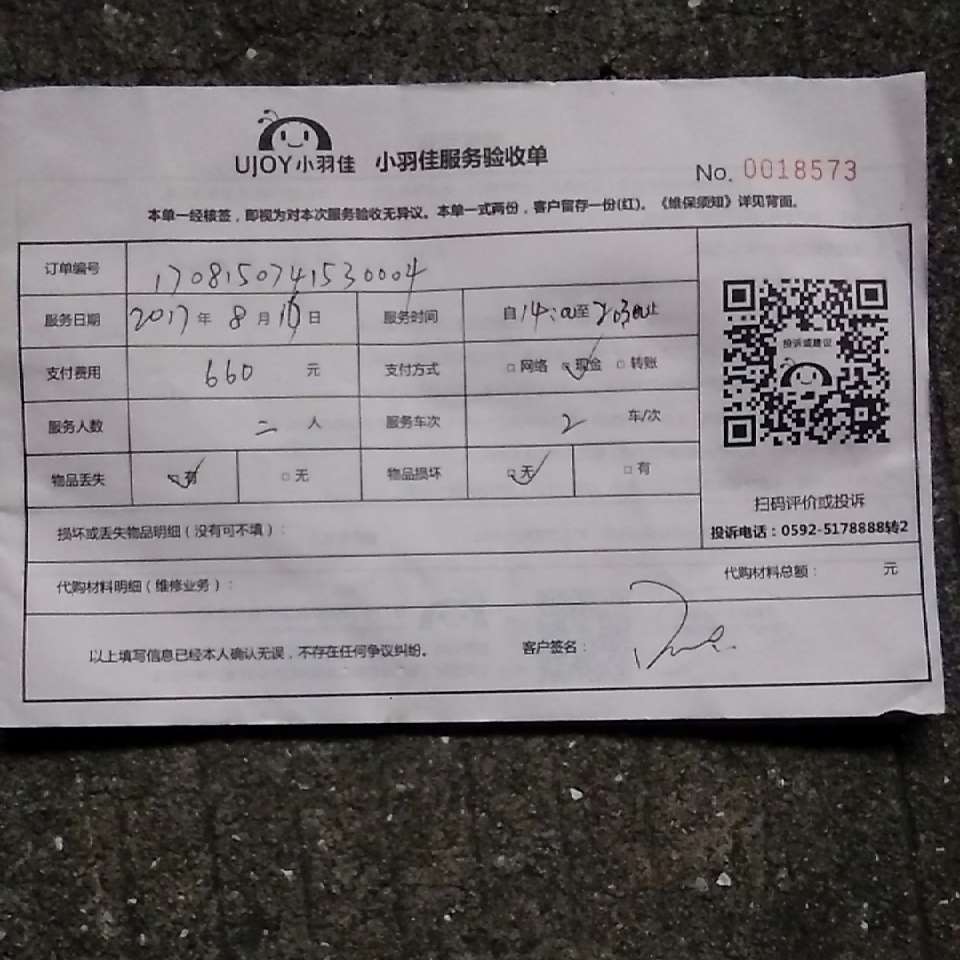 UJOY小羽佳 小羽佳服务验收单
No. 0018573
本单一经核签，即视为对本次服务验收无异议。本单一式两份，客户留存一份(红)。《维保须知》详见背面。
订单编号 1708150741530004
服务日期 2017 年 8 月 16 日 服务时间 自 14:00 至 20:30 止
支付费用 660 元 支付方式 □网络 ☑现金 □转账
服务人数 二 人 服务车次 2 车/次
物品丢失 ☑有 □无 物品损坏 ☑无 □有
投诉或建议
扫码评价或投诉
投诉电话：0592-5178888转2
损坏或丢失物品明细（没有可不填）：
代购材料明细（维修业务）： 代购材料总额： 元
以上填写信息已经本人确认无误，不存在任何争议纠纷。 客户签名：